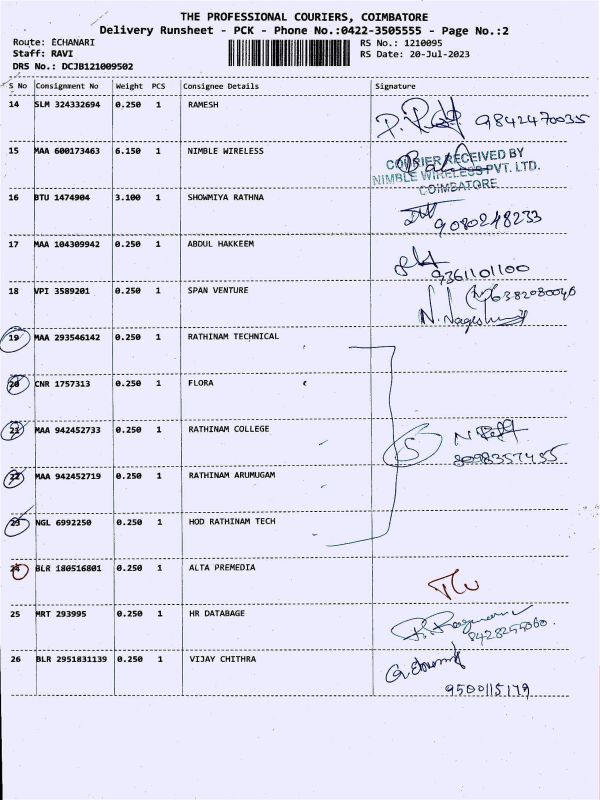 THE PROFESSIONAL COURIERS, COIMBATORE
Delivery Runsheet - PCK - Phone No.:0422-3505555 - Page No.:2
Route: ECHANARI RS No.: 1210095
Staff: RAVI RS Date: 20-Jul-2023
DRS No.: DCJB121009502
S No Consignment No Weight PCS Consignee Details Signature
14 SLM 324332694 0.250 1 RAMESH
9842470035
15 MAA 600173463 6.150 1 NIMBLE WIRELESS
COURIER RECEIVED BY
NIMBLE WIRELESS PVT. LTD.
COIMBATORE
16 BTU 1474904 3.100 1 SHOWMIYA RATHNA
9080248233
17 MAA 104309942 0.250 1 ABDUL HAKKEEM
9361101100
18 VPI 3589201 0.250 1 SPAN VENTURE
6382080046
19 MAA 293546142 0.250 1 RATHINAM TECHNICAL
20 CNR 1757313 0.250 1 FLORA
21 MAA 942452733 0.250 1 RATHINAM COLLEGE
5
8098357455
22 MAA 942452719 0.250 1 RATHINAM ARUMUGAM
23 NGL 6992250 0.250 1 HOD RATHINAM TECH
24 BLR 180516801 0.250 1 ALTA PREMEDIA
25 MRT 293995 0.250 1 HR DATABAGE
8428255060.
26 BLR 2951831139 0.250 1 VIJAY CHITHRA
9500115179